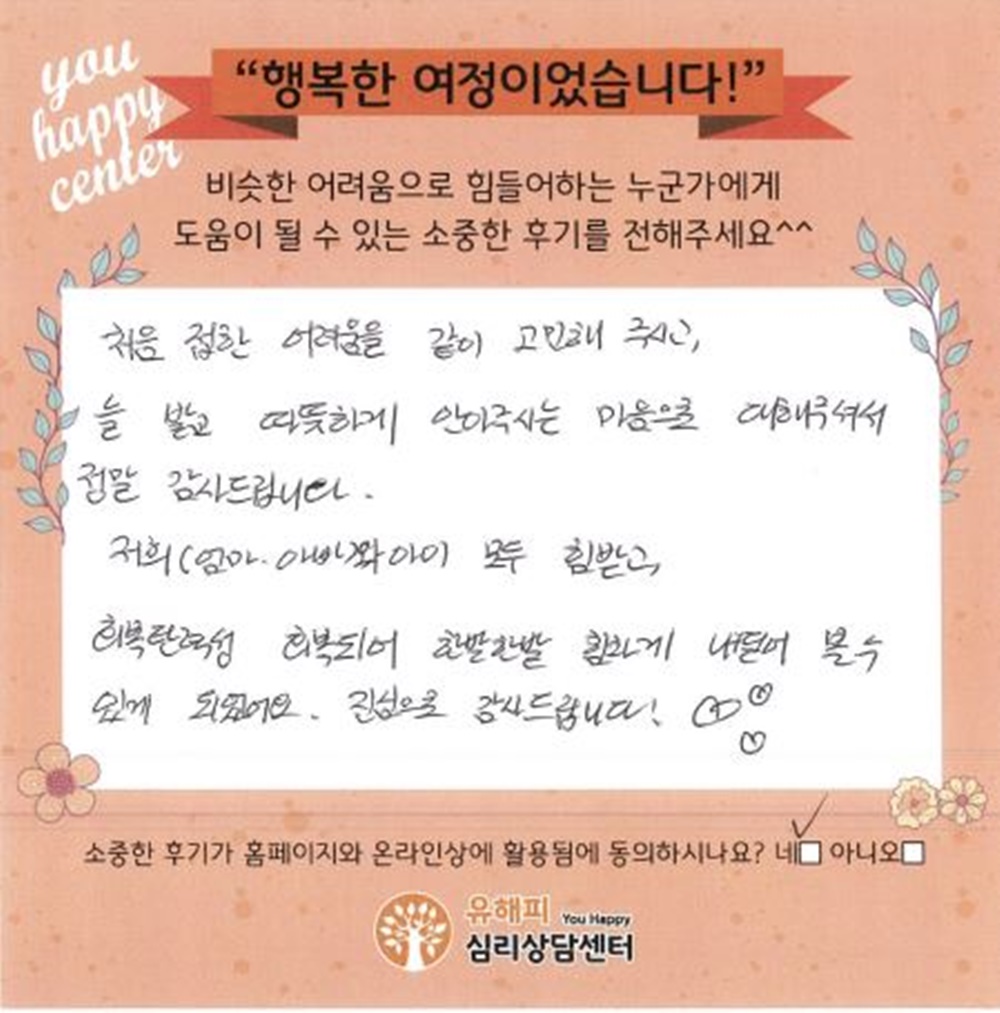 you
happy
center
“행복한 여정이었습니다!”
비슷한 어려움으로 힘들어하는 누군가에게
도움이 될 수 있는 소중한 후기를 전해주세요^^
처음 접한 어려움을 같이 고민해 주시고,
늘 밝고 따뜻하게 안아주시는 마음으로 대해주셔서
정말 감사드립니다.
저희(엄마·아빠)와 아이 모두 힘받고,
회복탄력성 회복되어 한발한발 힘차게 내딛어 볼 수
있게 되었어요. 진심으로 감사드립니다!
소중한 후기가 홈페이지와 온라인상에 활용됨에 동의하시나요? 네 아니오
유해피 You Happy
심리상담센터